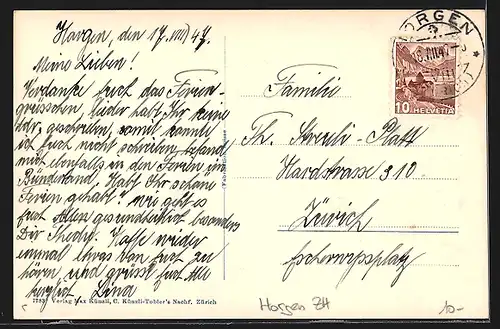 Horgen, den 17. VIII 47.
Meine Lieben!
Verdanke Euch das Ferien-
grüsschen, leider habt Ihr keine
Adr. geschrieben, somit konnte
ich Euch nicht schreiben, befand
mich ebenfalls in den Ferien im
Bünderland. Habt Ihr schöne
Ferien gehabt? Wie geht es
Euch Allen gesundheitlich besonders
Dir Thedy. Hoffe wieder
einmal etwas von Euch zu
hören, und grüsst Euch Alle
herzlich Lina
Familie
Th. Streuli-Platt
Hardstrasse 310
Zürich
Escherwyssplatz
HORGEN
10 HELVETIA
Verlag Max Künzli, C. Künzli-Tobler's Nachf. Zürich
Horgen ZH
10-